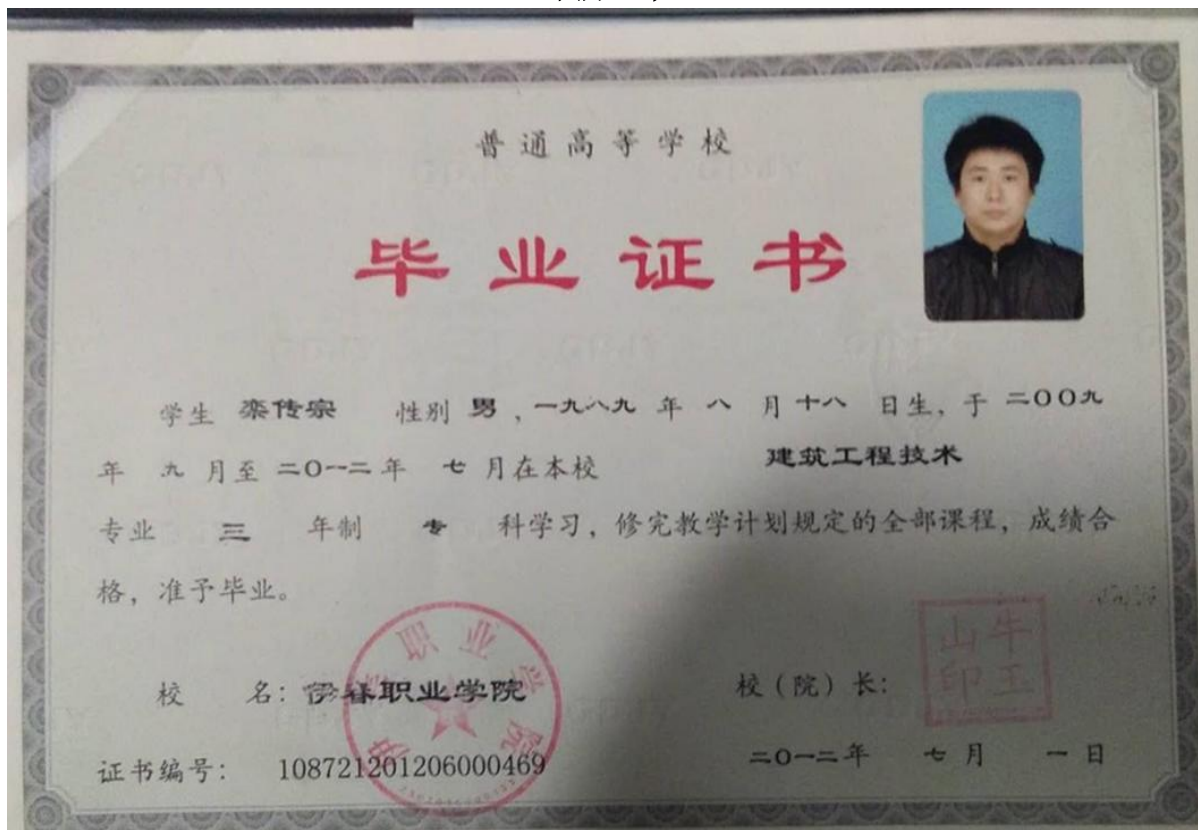 普通高等学校
毕业证书
学生 栾传宗 性别 男，一九八九 年 八 月 十八 日生，于 二〇〇九
年 九 月至 二〇一二 年 七 月在本校 建筑工程技术
专业 三 年制 专 科学习，修完教学计划规定的全部课程，成绩合
格，准予毕业。
校 名：伊春职业学院
校（院）长：
牛玉山印
证书编号： 108721201206000469
二〇一二年 七 月 一 日